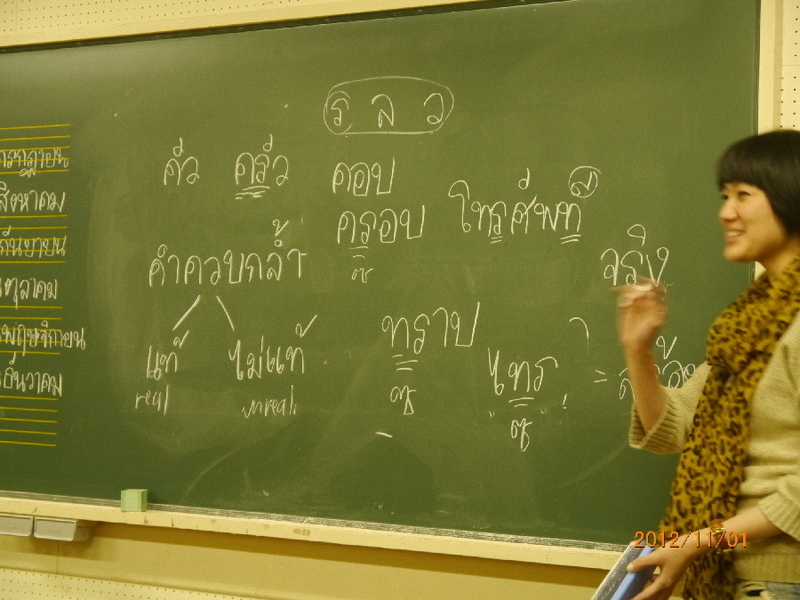 ร ล ว
คัว ครัว คอบ
ครอบ โทรศัพท์
ซ
คำควบกล้ำ จริง
แท้ ไม่แท้ ทราบ ไทร =
real unreal ซ ซ
สิงหาคม
กันยายน
ตุลาคม
ธันวาคม
2012/11/01